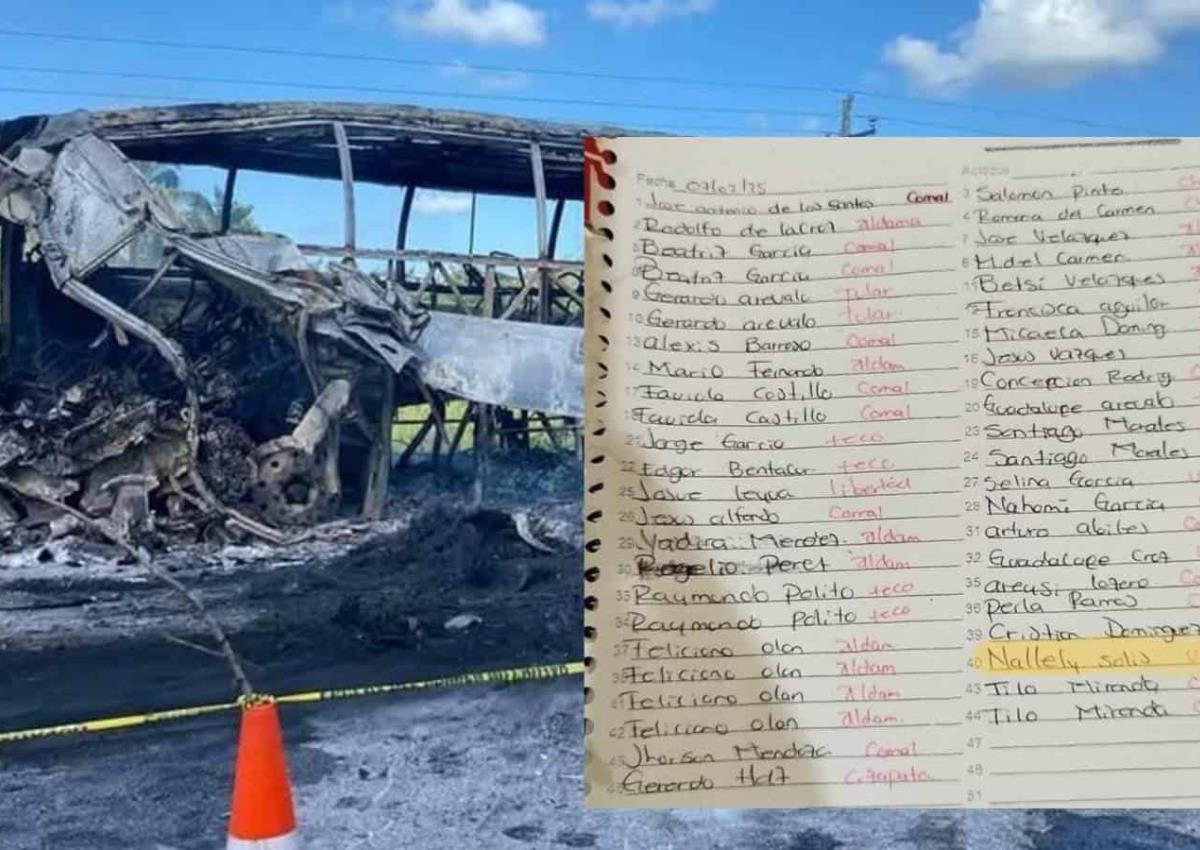 Fecha 07/02/25
1 Jose antonio de los Santos Comal
2 Rodolfo de lacroz aldama
5 Beatriz Garcia Comal
6 Beatriz Garcia Comal
9 Gerardo arevalo tular
10 Gerardo arevalo tular
13 alexis Barroso Comal
14 Mario Fernando aldam
17 Favida Costillo Comal
18 Favida Castillo Comal
21 Jorge Garcia teco
22 Edgar Bentacur teco
25 Josue leyva libertad
26 Jesus alfondo Comal
29 Yadira Mendez aldam
30 Rogelio Perez aldam
33 Raymondo Polito teco
34 Raymondo Polito teco
37 Feliciano olan aldam
38 Feliciano olan aldam
41 Feliciano olan aldam
42 Feliciano olan aldam
45 Jhonson Mendoza Comal
46 Gerardo
3 Salomon Pinto
4 del Carmen
7 Jose Velazquez
8 del Carmen
11 Betsi Velazques
12 Francisca aguilar
15 Micaela Doming
16 Jesus Vazques
19 Concepcion Rodrig
20 Guadalupe arevalo
23 Santiago Morales
24 Santiago Morales
27 Selina Garcia
28 Nahomi Garcia
31 arturo
32 Guadalupe Croz
35 areysi lozero
36 Perla Parras
39 Cristian Dominguez
40 Nallely solis
43 Tilo Miranda
44 Tilo Miranda
47
48
51